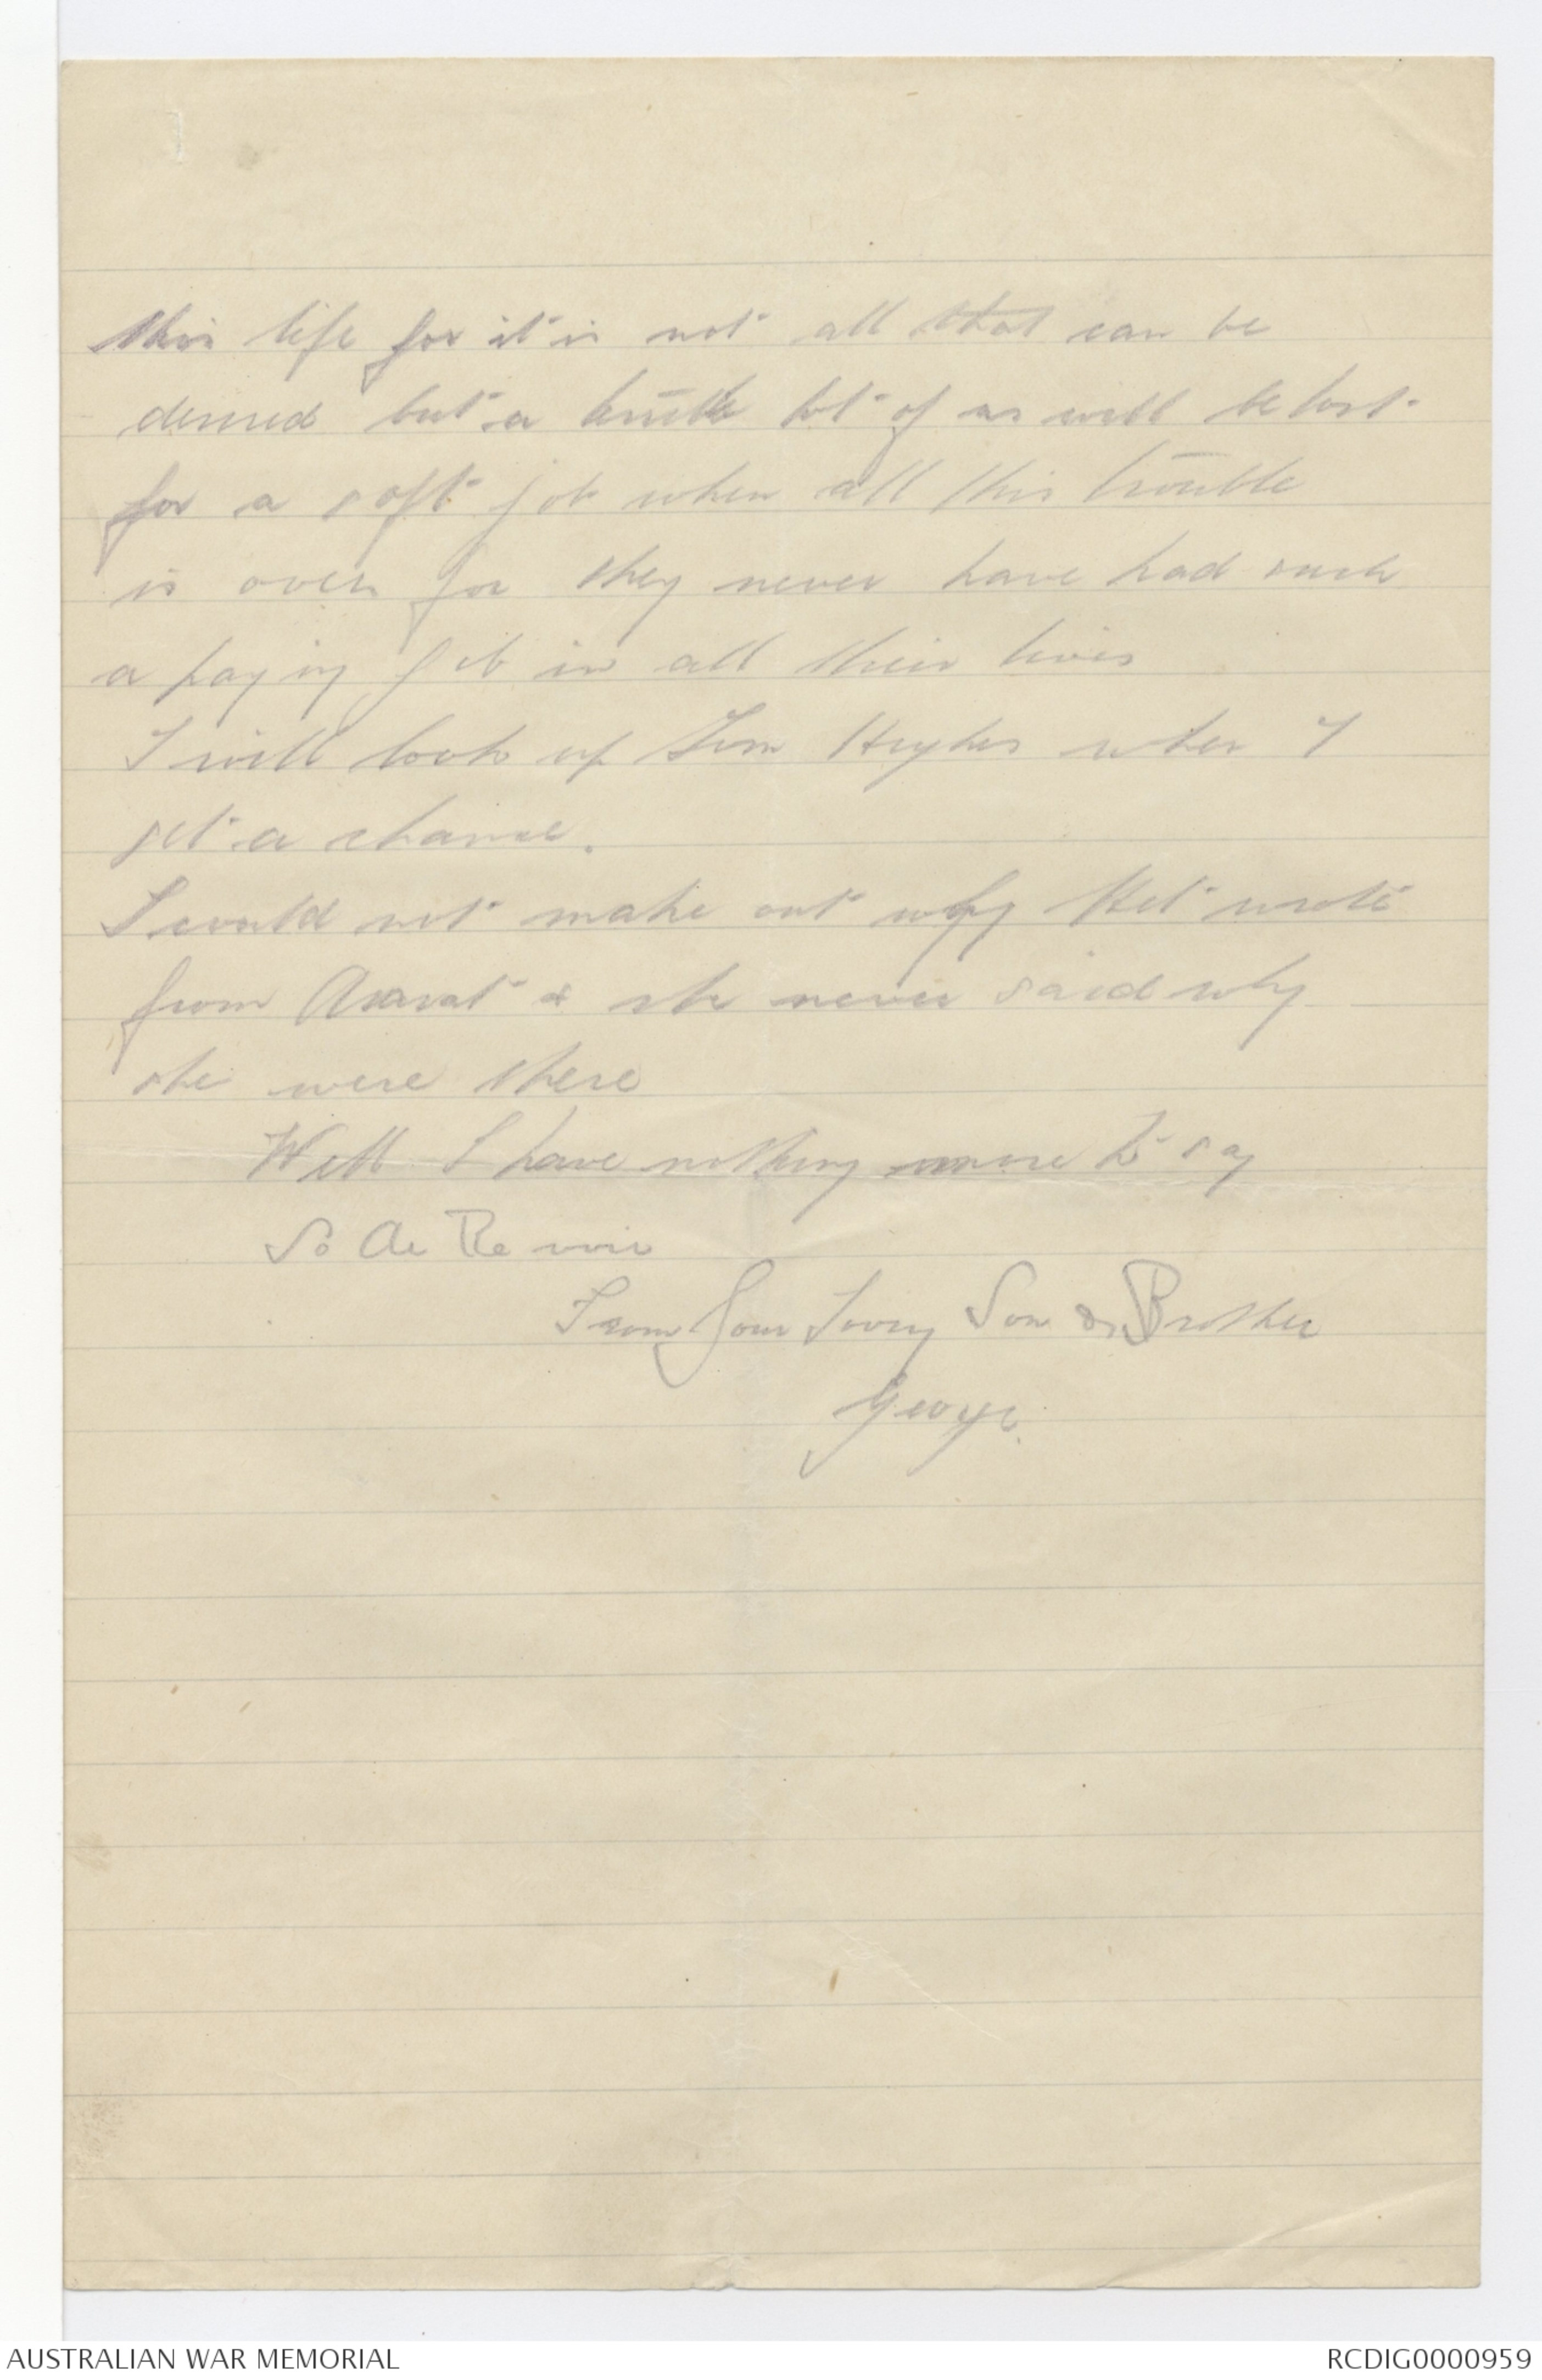 this life for it is not all that can be
desired but a lot of us will be lost
for a soft job when all this trouble
is over for they never have had such
a paying job in all their lives
I will look up Hughes when I
get a chance.
I could not make out why Het wrote
from Ararat & she never said why
she were there
Well I have nothing more to say
So Au Re voir
From Your Loving Son & Brother
George.
AUSTRALIAN WAR MEMORIAL
RCDIG0000959